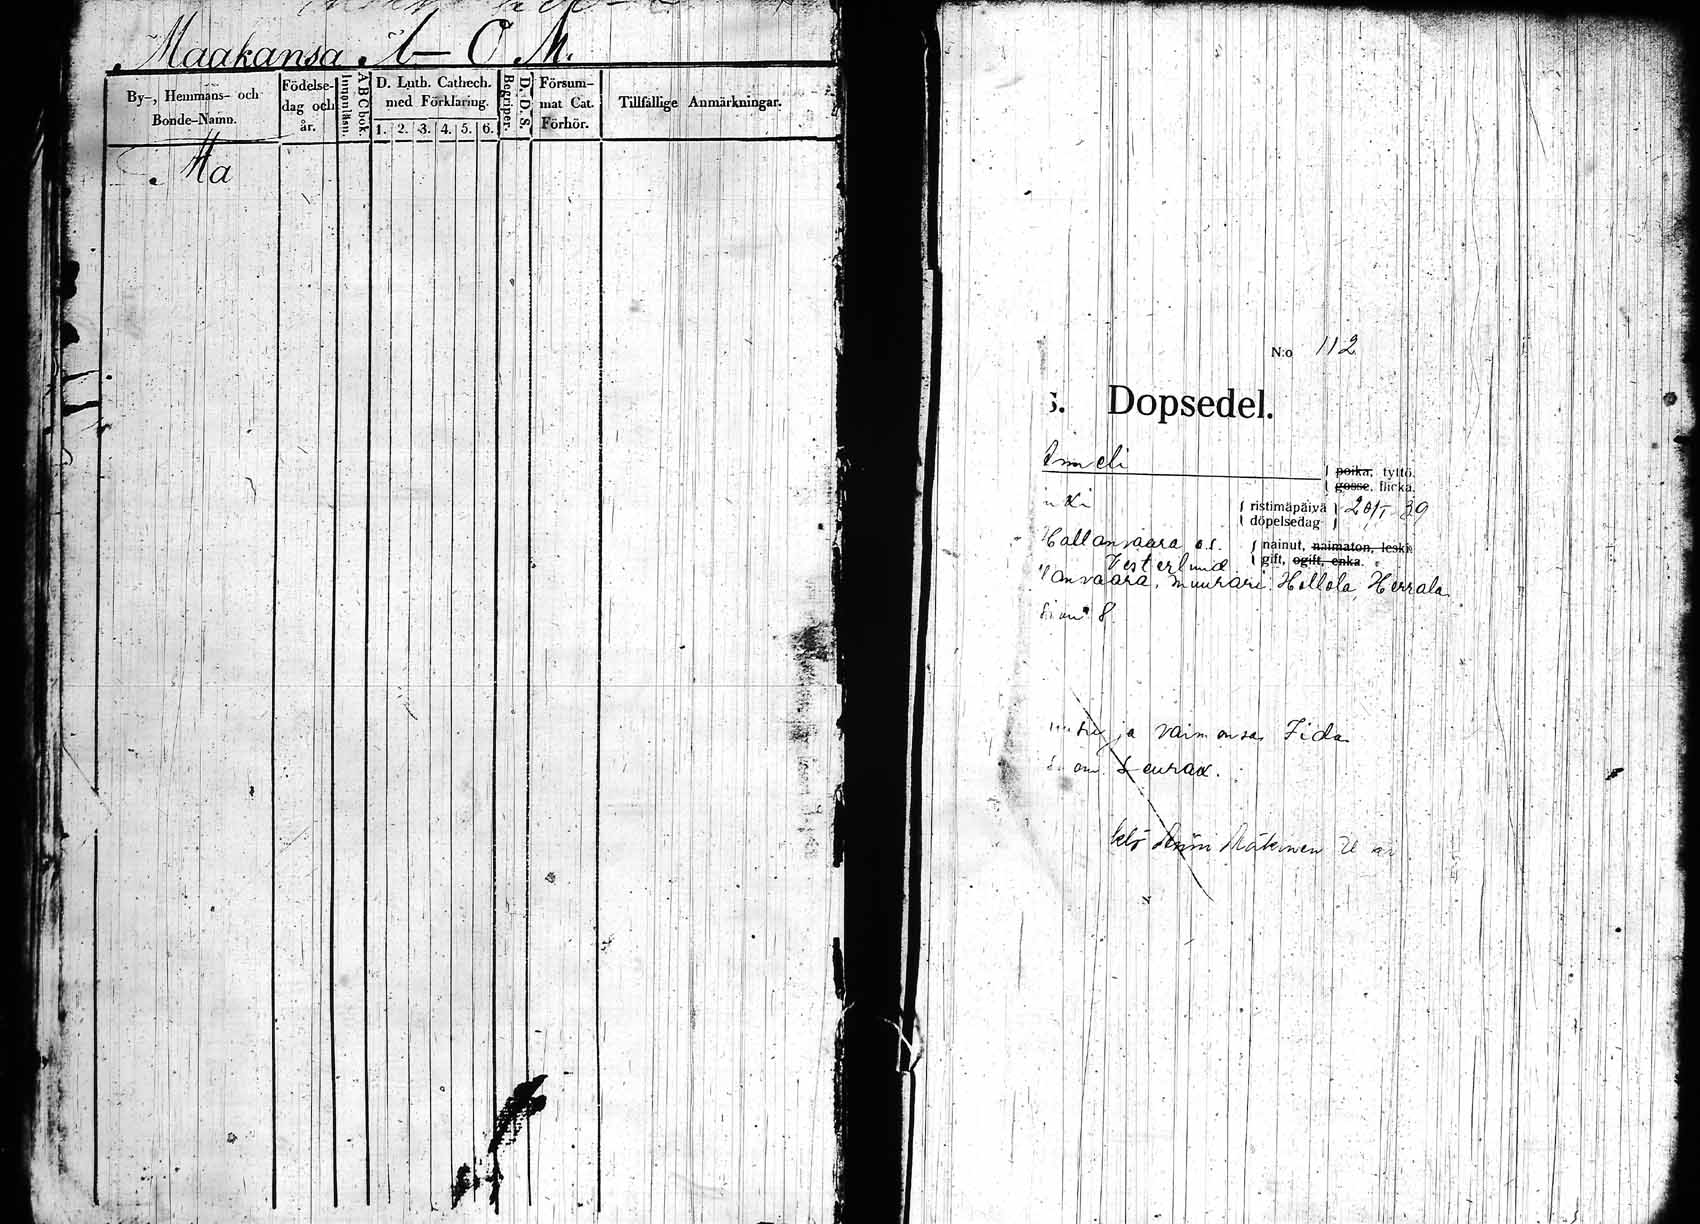 Maakansa
By-, Hemmans- och Bonde-Namn.
Födelse-dag och år.
Innanläsn.
A B C bok.
D. Luth. Cathech. med Förklaring.
1. 2. 3. 4. 5. 6.
Begriper.
D. D. S.
Försum-mat Cat. Förhör.
Tillfällige Anmärkningar.
Ma
N:o 112
s. Dopsedel.
poika, tyttö.
gosse, flicka.
ristimäpäivä
döpelsedag
20/1 39
Hallanvaara o.s.
nainut, naimaton, leski
Vesterlund
gift, ogift, enka.
anvaara, muurari Hollola, Herrala
8.
ja vaimonsa
Mäkinen